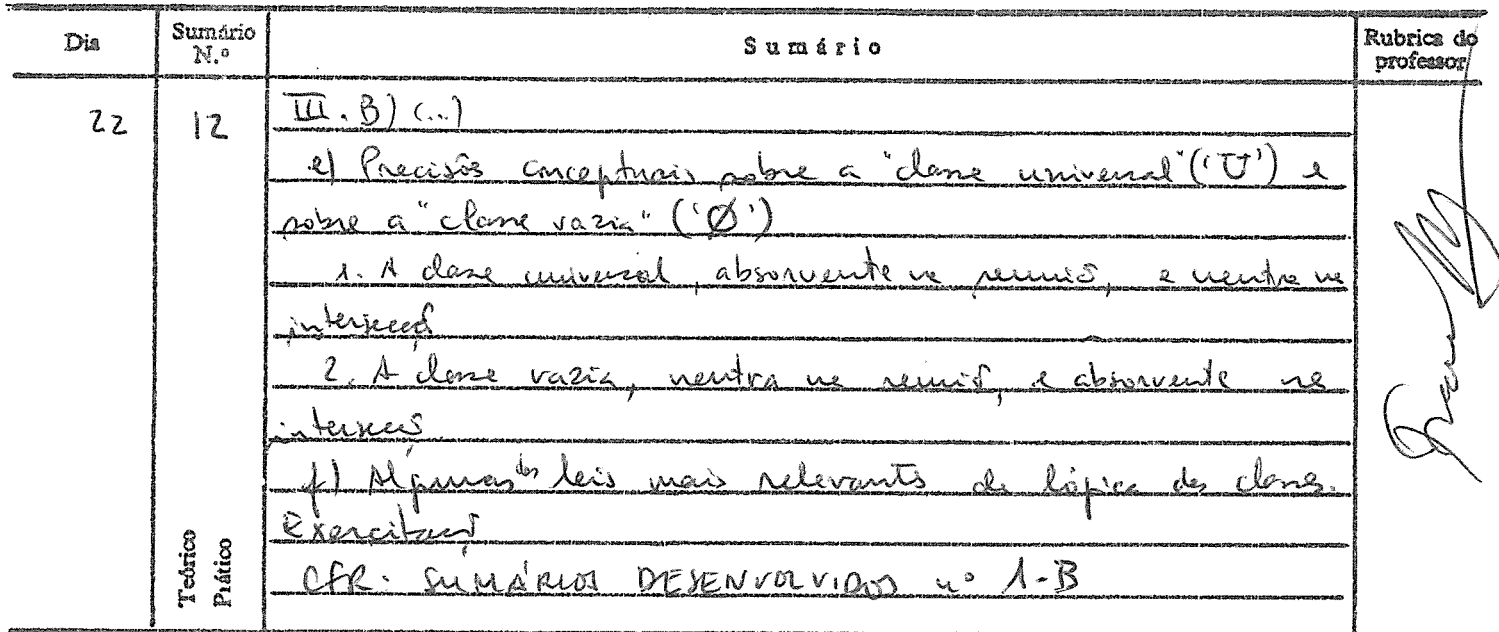 Dia
Sumário N.º
Sumário
Rubrica do professor
22
12
III. B) (...)
e) Precisões conceptuais sobre a "classe universal" ('U') e
sobre a "classe vazia" ('Ø')
1. A classe universal, absorvente na reunião, e neutra na
intersecção
2. A classe vazia, neutra na reunião, e absorvente na
intersecção
f) Algumas das leis mais relevantes da lógica das classes.
Exercitação
CFR. SUMÁRIOS DESENVOLVIDOS nº 1-B
Teórico
Prático